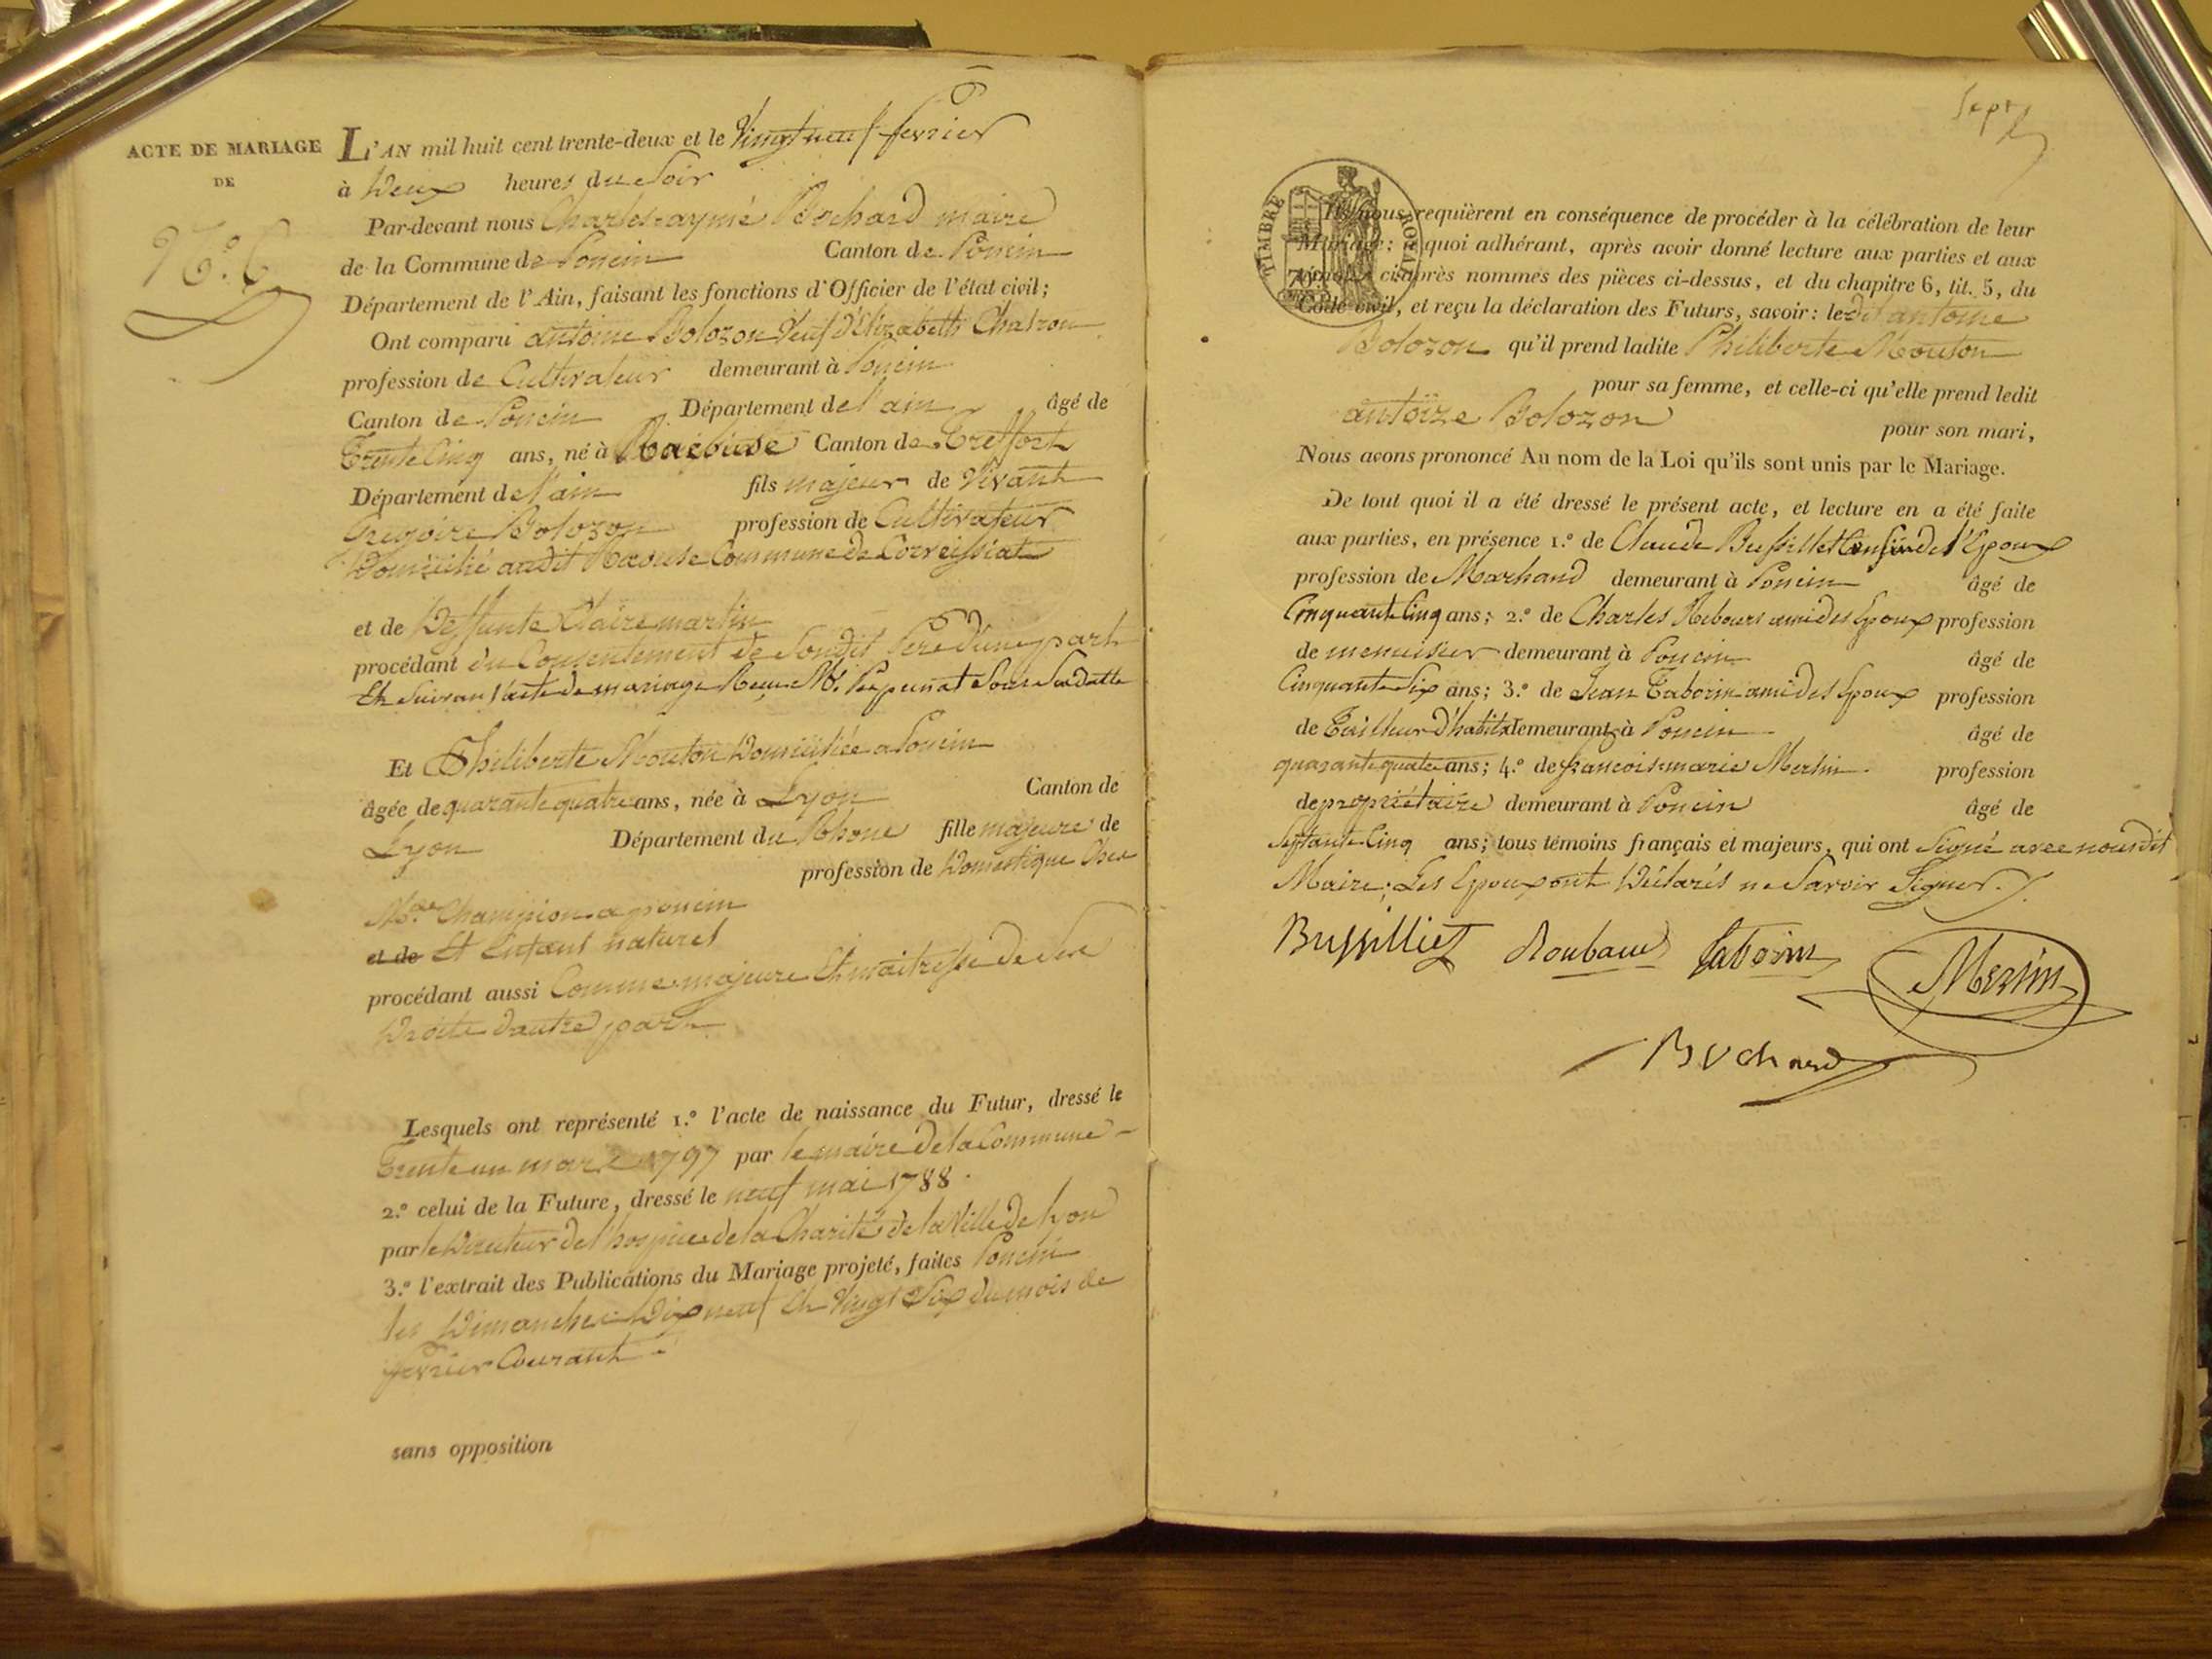 ACTE DE MARIAGE
DE
N.° 6
L'AN mil huit cent trente-deux et le Vingt neuf fevrier
à Deux heures du Soir
Par-devant nous Charles aymé Bochard maire
de la Commune de Poncin Canton de Poncin
Département de l'Ain, faisant les fonctions d'Officier de l'état civil;
Ont comparu antoine Bolozon Veuf d'Elizabeth Chatron
profession de Cultivateur demeurant à Poncin
Canton de Poncin Département de l'ain âgé de
Trente Cinq ans, né à Canton de Treffort
Département de l'ain fils majeur de Vivant
Gregoire Bolozon profession de Cultivateur
Domicilié audit Commune de Corveissiat
et de Deffunte Claire martin
procédant du Consentement de Sondit Pere d'une part
Et Suivan l'acte de mariage Recu M.e Sous Sa datte
Et Philiberte Mouton Domiciliée a Poncin
âgée de quarante quatre ans, née à Lyon Canton de
Lyon Département du Rhone fille majeure de
profession de Domestique Chez
M.de Champion a poncin
et de Et Enfant naturel
procédant aussi Comme majeure Et maitresse de Ses
Droits d'autre part
Lesquels ont représenté 1.° l'acte de naissance du Futur, dressé le
Trente un mars 1797 par le maire de la Commune
2.° celui de la Future, dressé le neuf mai 1788.
par le Directeur de l'hospice de la Charité de la Ville de Lyon
3.° l'extrait des Publications du Mariage projeté, faites Poncin
les Dimanches Dix neuf Et Vingt Six du mois de
fevrier Courant
sans opposition
Sept
TIMBRE ROYAL
Ils nous requièrent en conséquence de procéder à la célébration de leur
Mariage: à quoi adhérant, après avoir donné lecture aux parties et aux
témoins ci-après nommés des pièces ci-dessus, et du chapitre 6, tit. 5, du
Code civil, et reçu la déclaration des Futurs, savoir: ledit antoine
Bolozon qu'il prend ladite Philiberte Mouton
pour sa femme, et celle-ci qu'elle prend ledit
antoize Bolozon pour son mari,
Nous avons prononcé Au nom de la Loi qu'ils sont unis par le Mariage.
De tout quoi il a été dressé le présent acte, et lecture en a été faite
aux parties, en présence 1.° de Claude Bussillet Cousin de l'Epoux
profession de Marhand demeurant à Poncin âgé de
Cinquante Cinq ans; 2.° de Charles Rebours ami des Epoux profession
de menuisier demeurant à Poncin âgé de
Cinquante Six ans; 3.° de Jean Taborin ami des Epoux profession
de Tailleur d'habits demeurant à Poncin âgé de
quarante quatre ans; 4.° de francois marie Merlin profession
de propriétaire demeurant à Poncin âgé de
Septante Cinq ans; tous témoins français et majeurs, qui ont Signé avec nousdit
Maire; Les Epoux ont Déclarés ne Savoir Signer.
Bussilliet Roubaud Taborin Merlin
Bochard